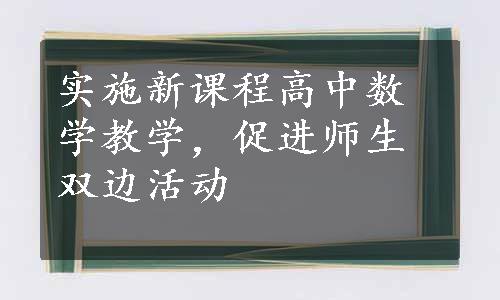 实施新课程高中数
学教学，促进师生
双边活动